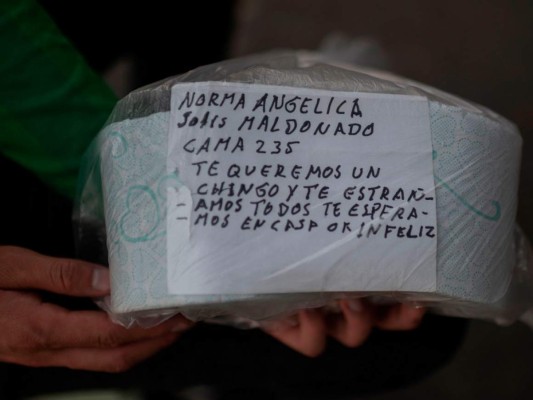 NORMA ANGELICA
Solis MALDONADO
CAMA 235
TE QUEREMOS UN
CHINGO Y TE ESTRAÑ-
- AMOS TODOS TE ESPERA-
- MOS EN CASA OK INFELIZ